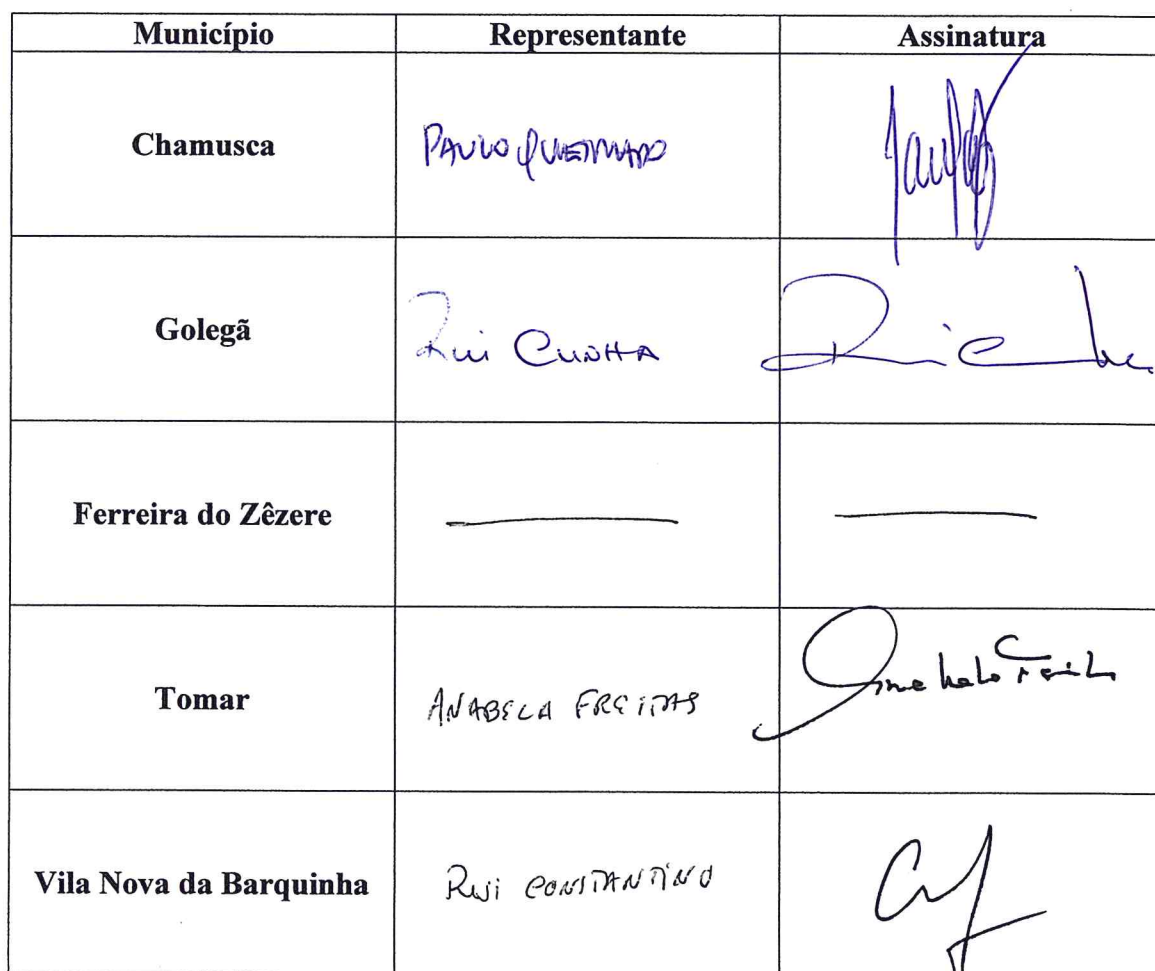 Município Representante Assinatura
Chamusca PAULO QUEIMADO
Golegã Rui CUNHA Rui C
Ferreira do Zêzere
Tomar ANABELA FREITAS
Vila Nova da Barquinha Rui CONSTANTINO